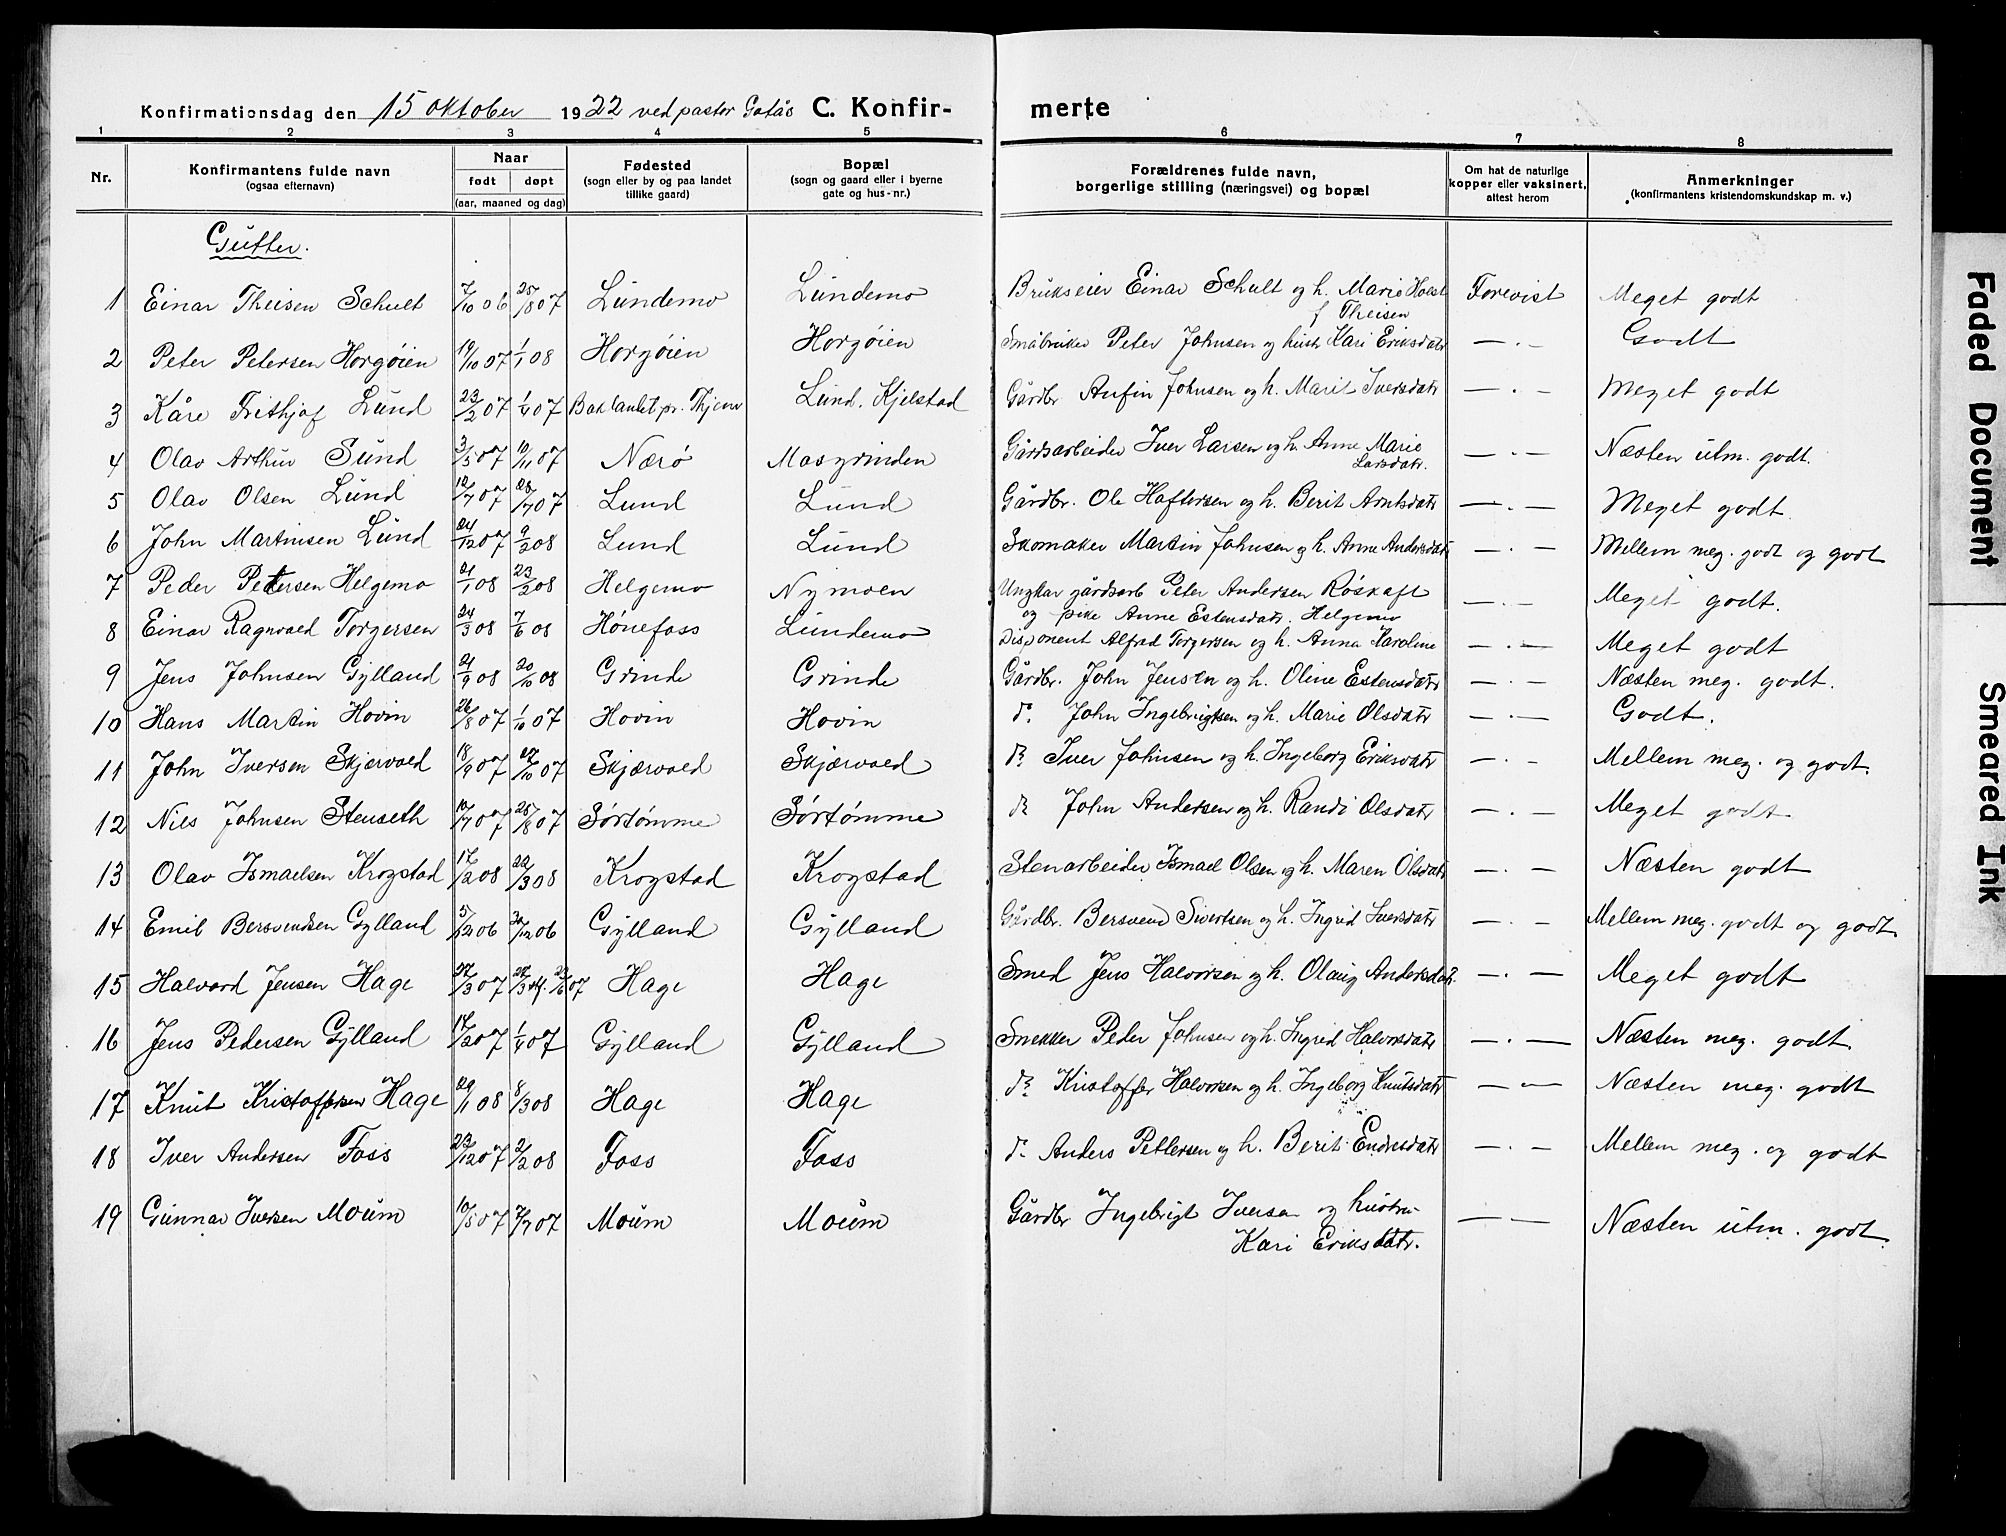 Konfirmationsdag den 15 oktober 1922 ved pastor C. Konfir-merte
1 2 3 4 5 6 7 8
Nr. Konfirmantens fulde navn (ogsaa efternavn) Naar født døpt (aar, maaned og dag) Fødested (sogn eller by og paa landet tillike gaard) Bopæl (sogn og gaard eller i byerne gate og hus-nr.) Forældrenes fulde navn, borgerlige stilling (næringsvei) og bopæl Om hat de naturlige kopper eller vaksinert, attest herom Anmerkninger (konfirmantens kristendomskundskap m. v.)
Gutter.
1 Einar Theisen Schult 7/10 06 25/8 07 Lundemo Lundemo Brukseier Einar Schult og h. Marie Holst f Theisen Forevist Meget godt
2 Peter Petersen Horgøien 19/10 07 1/1 08 Horgøien Horgøien Småbruker Peter Johnsen og hustr Kari Eriksdatr — . — Godt
3 Kåre Frithjof Lund 23/2 07 1/4 07 Baklandet pr. Thjem Lund. Kjelstad Gårdbr Anfin Johnsen og h. Marit Iversdatr — . — Meget godt
4 Olav Arthur Sund 3/5 07 10/11 07 Nærø Masgrinden Gårdsarbeider Iver Larsen og h. Anne Marie Larsdatr. — . — Næsten utm. godt.
5 Olav Olsen Lund 12/7 07 28/7 07 Lund Lund Gårdbr. Ole Haftorsen og h. Berit Arntsdatr — . — Meget godt
6 John Martinsen Lund 24/12 07 9/2 08 Lund Lund Skomaker Martin Johnsen og h. Anne Andersdatr — . — Mellem meg. godt og godt
7 Peder Petersen Helgemo 21/1 08 23/2 08 Helgemo Nymoen Ungkar gårdsarb Peter Andersen Røskaft og pike Anne Estensdatr. Helgemo — . — Meget godt.
8 Einar Ragnvald Torgersen 24/3 08 7/6 08 Hønefoss Lundemo Disponent Alfred Torgersen og h. Anna Karoline — . — Meget godt
9 Jens Johnsen Gylland 21/9 08 20/10 08 Grinde Grinde Gårdbr. John Jensen og h. Oline Estensdatr — . — Næsten meg. godt.
10 Hans Martin Hovin 26/8 07 1/10 07 Hovin Hovin do John Ingebrigtsen og h. Marie Olsdatr — . — Godt.
11 John Iversen Skjærvold 18/9 07 27/10 07 Skjærvold Skjærvold do Iver Johnsen og h. Ingeborg Eriksdatr — . — Mellem meg. og godt.
12 Nils Johnsen Stenseth 10/7 07 25/8 07 Sørtømme Sørtømme do John Andersen og h. Randi Olsdatr — . — Meget godt
13 Olav Ismaelsen Krogstad 17/2 08 22/3 08 Krogstad Krogstad Stenarbeider Ismael Olsen og h. Maren Olsdatr — . — Næsten godt
14 Emil Bersvendsen Gylland 5/12 06 30/12 06 Gylland Gylland Gårdbr. Bersvend Sivertsen og h. Ingrid Iversdatr — . — Mellem meg. godt og godt
15 Halvard Jensen Hage 27/3 07 Hage Hage Smed Jens Halvorsen og h. Olaug Andersdatr — . — Meget godt
16 Jens Pedersen Gylland 14/2 07 1/4 07 Gylland Gylland Snekker Peder Johnsen og h. Ingrid Halvorsdatr — . — Næsten meg. godt
17 Knut Kristoffersen Hage 29/1 08 8/3 08 Hage Hage do Kristoffer Halvorsen og h. Ingeborg Knutsdatr — . — Næsten meg. godt
18 Iver Andersen Foss 23/12 07 2/2 08 Foss Foss do Anders Pettersen og h. Berit Endresdatr — . — Mellem meg. og godt
19 Gunnar Iversen Moum 10/5 07 7/7 07 Moum Moum Gårdbr Ingebrigt Iversen og hustru Kari Eriksdatr. — . — Næsten utm. godt.
Faded Document
Smeared Ink